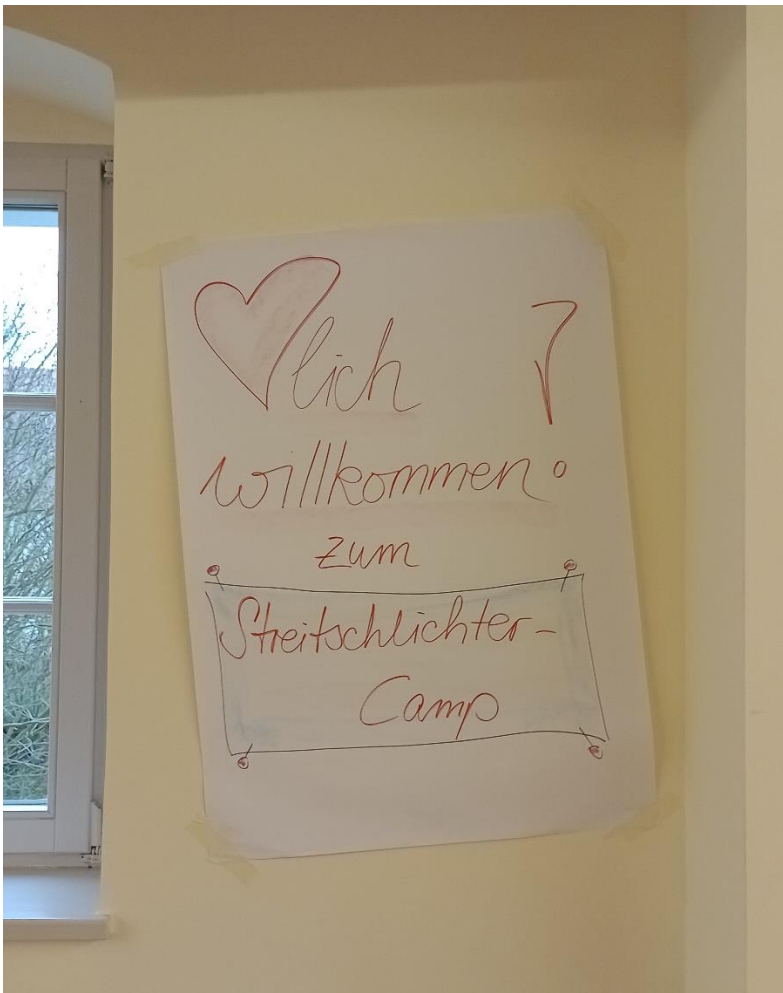 ♥lich
willkommen!
zum
Streitschlichter-
Camp